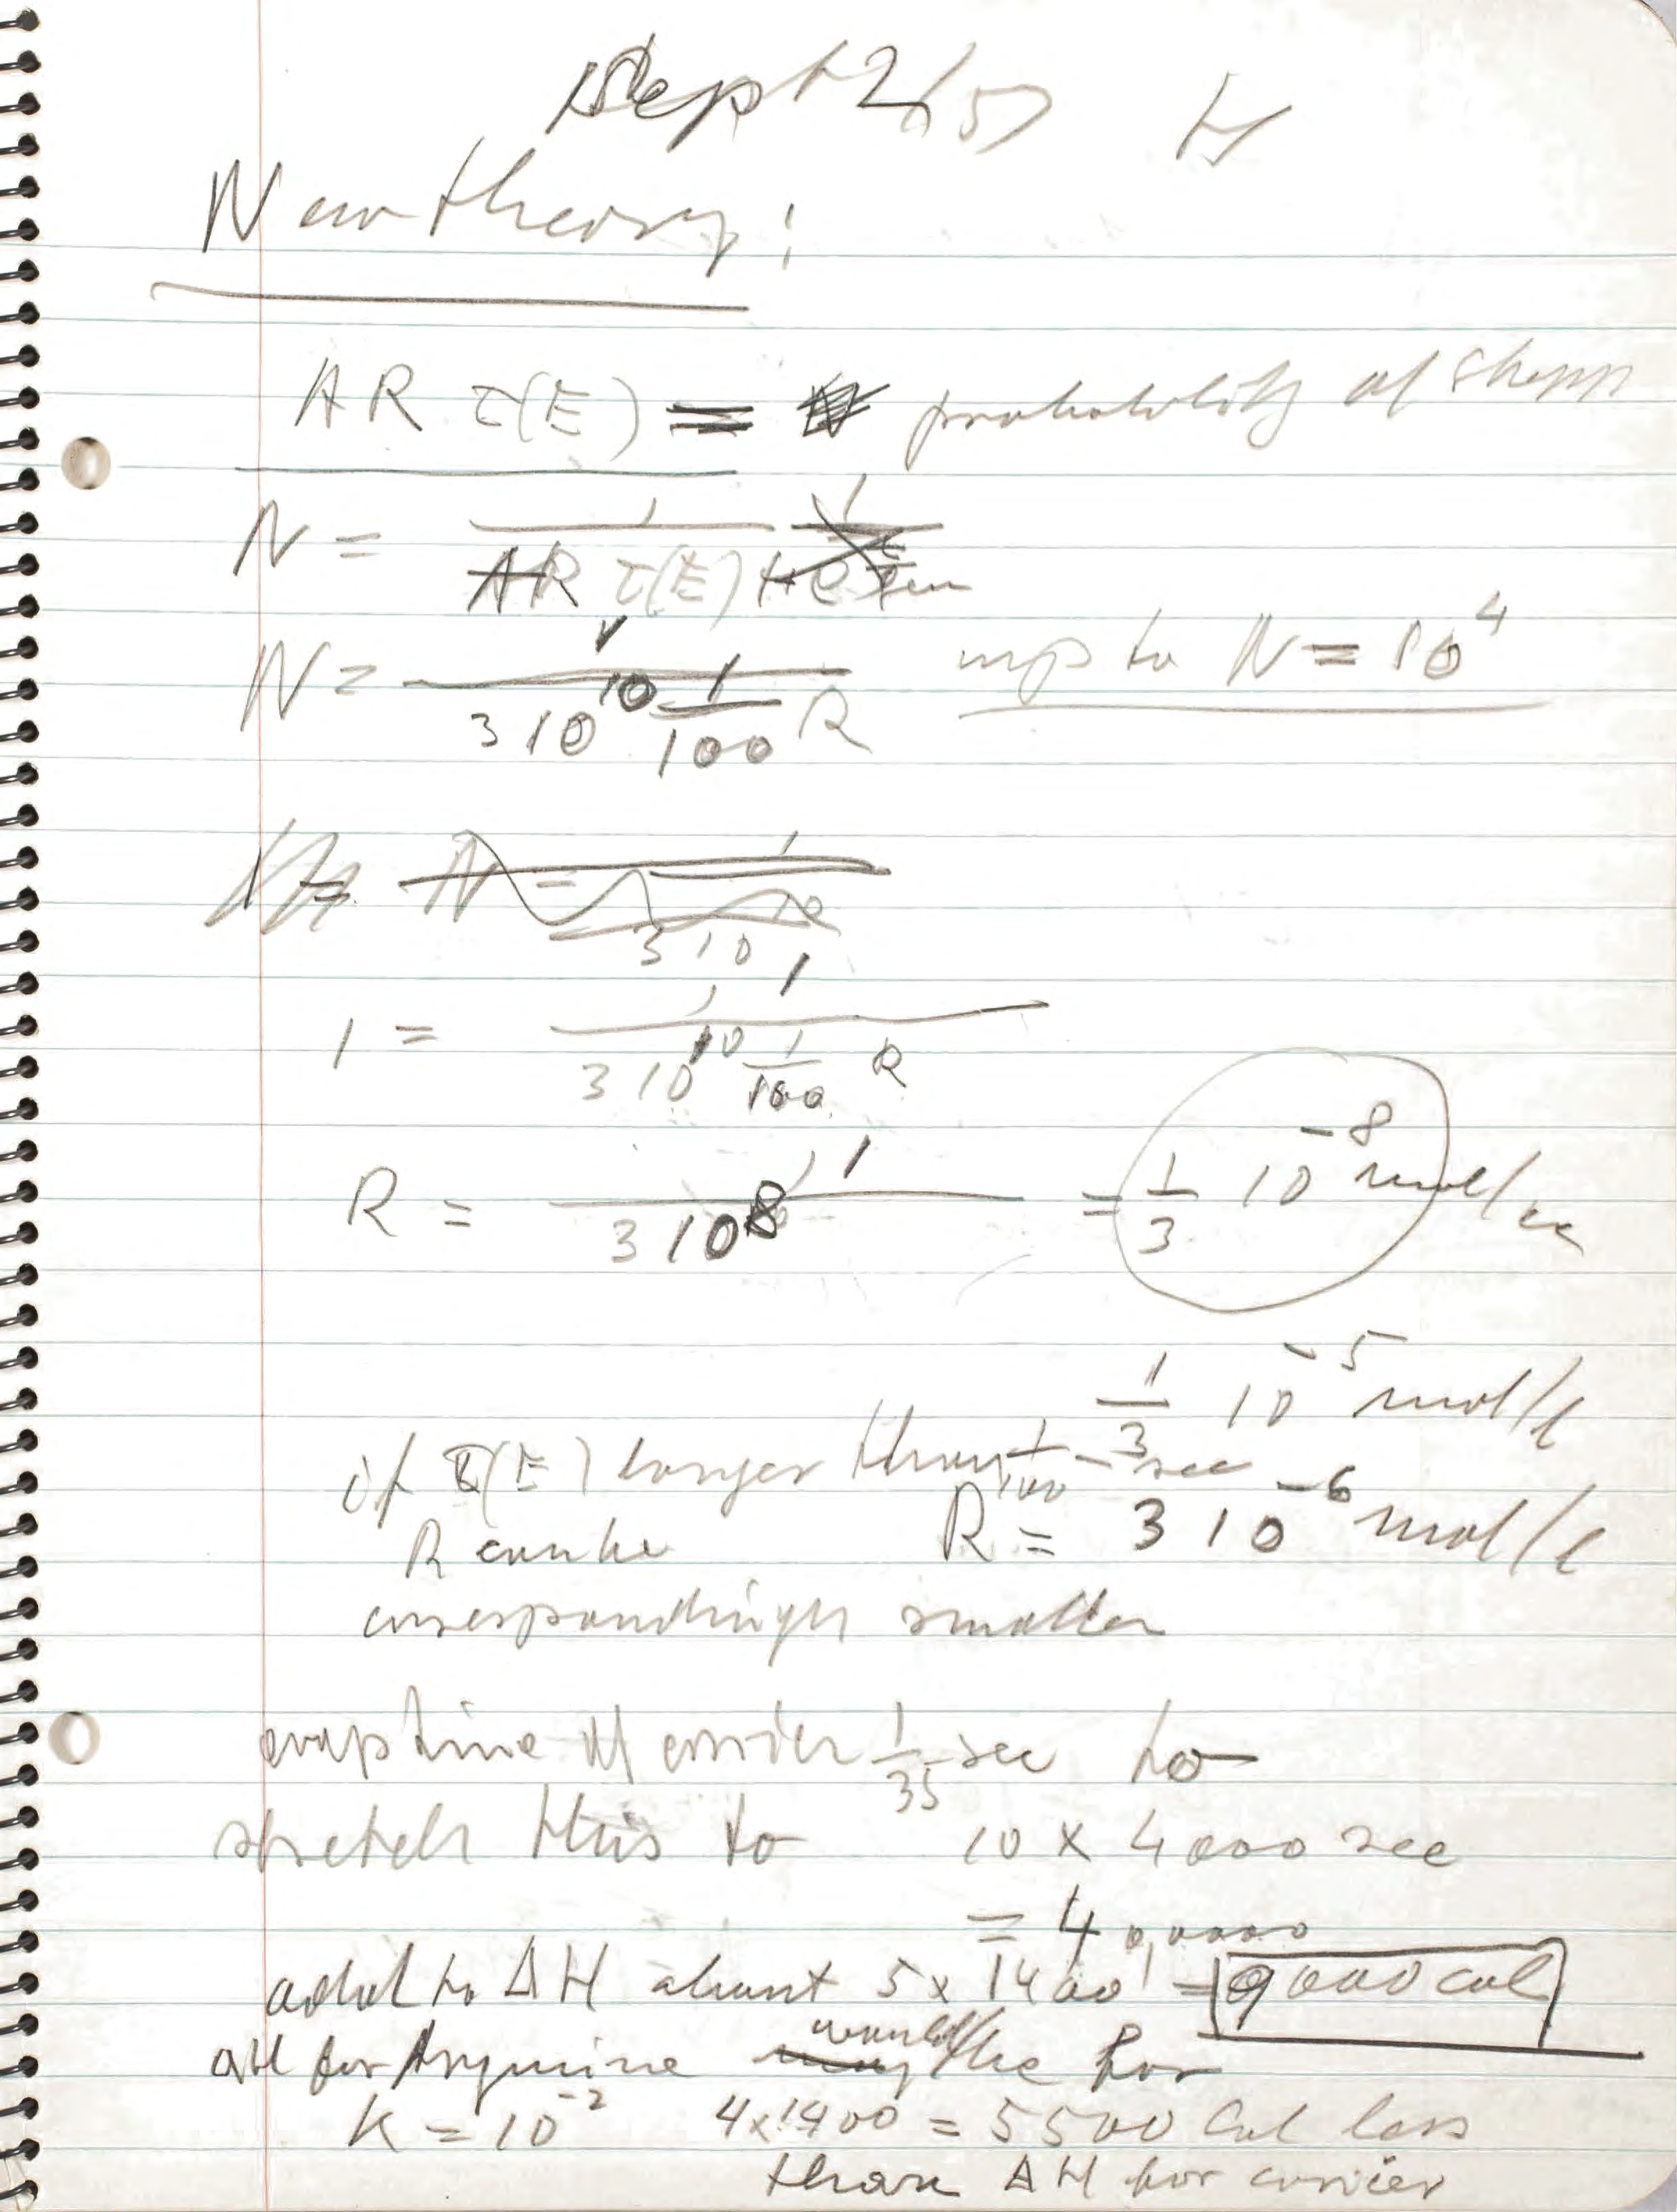 Sept 2/57 H
New theory:
AR τ(E) = probability of
N = 1 / AR τ(E)
N = 1 / 3 10^10 1/100 R up to N = 10^4
N =
3 10
1 = 1 / 3 10^10 1/100 R
R = 1 / 3 10^8 = 1/3 10^-8 mol/cc
1/3 10^-5 mol/l
if τ(E) longer than 1/100 sec
R can be R = 3 10^-6 mol/l
correspondingly smaller
evap time of 1/35 sec to
stretch this to 10 x 4000 sec
= 40,000
add to ΔH about 5 x 1400 = 9000 cal
ΔH for Arginine would be for
K = 10^-2 4x1400 = 5500 Cal less
than ΔH for carrier